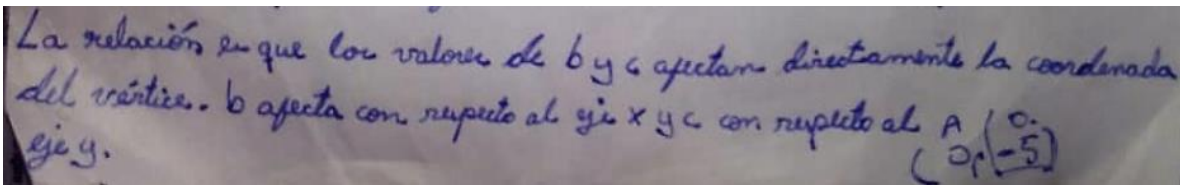 La relación en que los valores de b y c afectan directamente la coordenada
del vértice. b afecta con respecto al eje x y c con respecto al A (0.
eje y. (0, (-5)